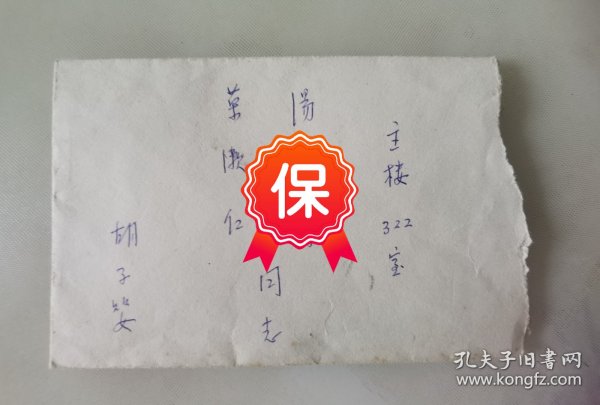 主楼322室
汤
荣漱仁
同志
胡子婴
保
孔夫子旧书网
www.kongfz.com